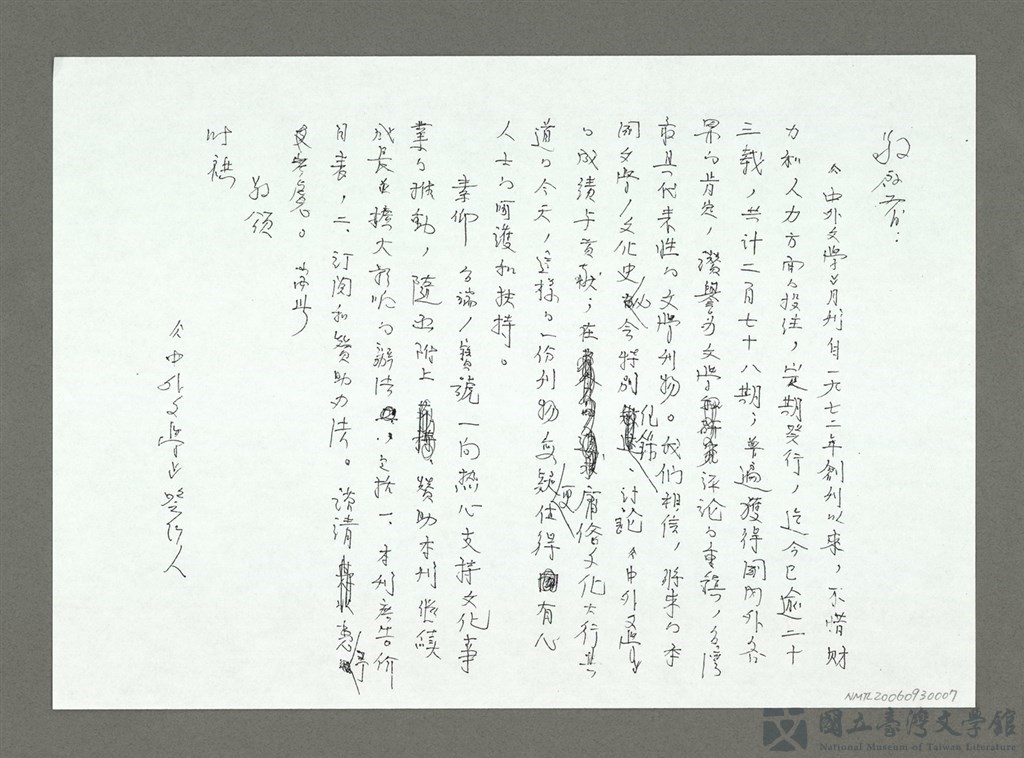 敬啟者：
《中外文學》月刊自一九七二年創刊以來，不惜財
力和人力方面的投注，定期發行，迄今已逾二十
三載，共計二百七十八期；普遍獲得國內外各
界的肯定，讚譽為文學評論的重鎮，台灣
最具代表性的文學刊物。我們相信，將來的本
國文學／文化史必會特別紀錄、討論《中外文學》
的成績與貢獻；在庸俗文化大行其
道的今天，這樣的一份刊物更值得有心
人士的呵護和扶持。
素仰 台端／寶號一向熱心支持文化事
業的推動，隨函附上贊助本刊繼續
成長並擴大影響的辦法，包括一、本刊廣告價
目表，二、訂閱和贊助辦法。敬請惠予
支持。耑此
敬頌
時祺
《中外文學》發行人
NMTL20060930007
國立臺灣文學館
National Museum of Taiwan Literature